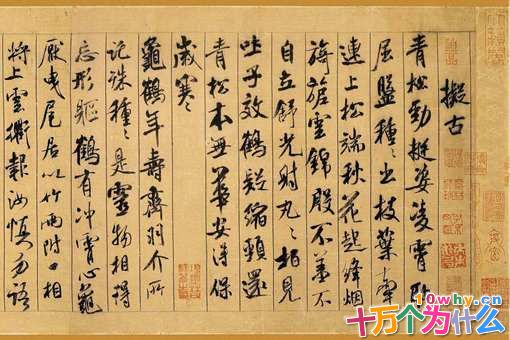 擬古
青松勁挺姿凌霄耻
屈盤種〻出枝葉牽
連上松端秋花起絳烟
旖旎雲錦殷不羞不
自立舒光射丸〻柏見
吐子效鶴疑縮頸還
青松本無華安得保
歲寒
龜鶴年壽齊羽介所
託殊種〻是靈物相得
忘形軀鶴有冲霄心龜
厭曳尾居以竹兩附口相
將上雲衢報汝慎勿語
10why.cn
十万个为什么